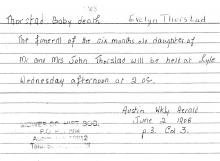 Thorstad Baby death Evelyn Thorstad
The funeral of the six months old daughter of
Mr and Mrs John Thorstad will be held at Lyle
Wednesday afternoon at 2 oc.
Austin Wkly Herald
June 2 1908
p. 3. Col 3.
MOWER CO HIST SOC.
P.O. Box
Austin